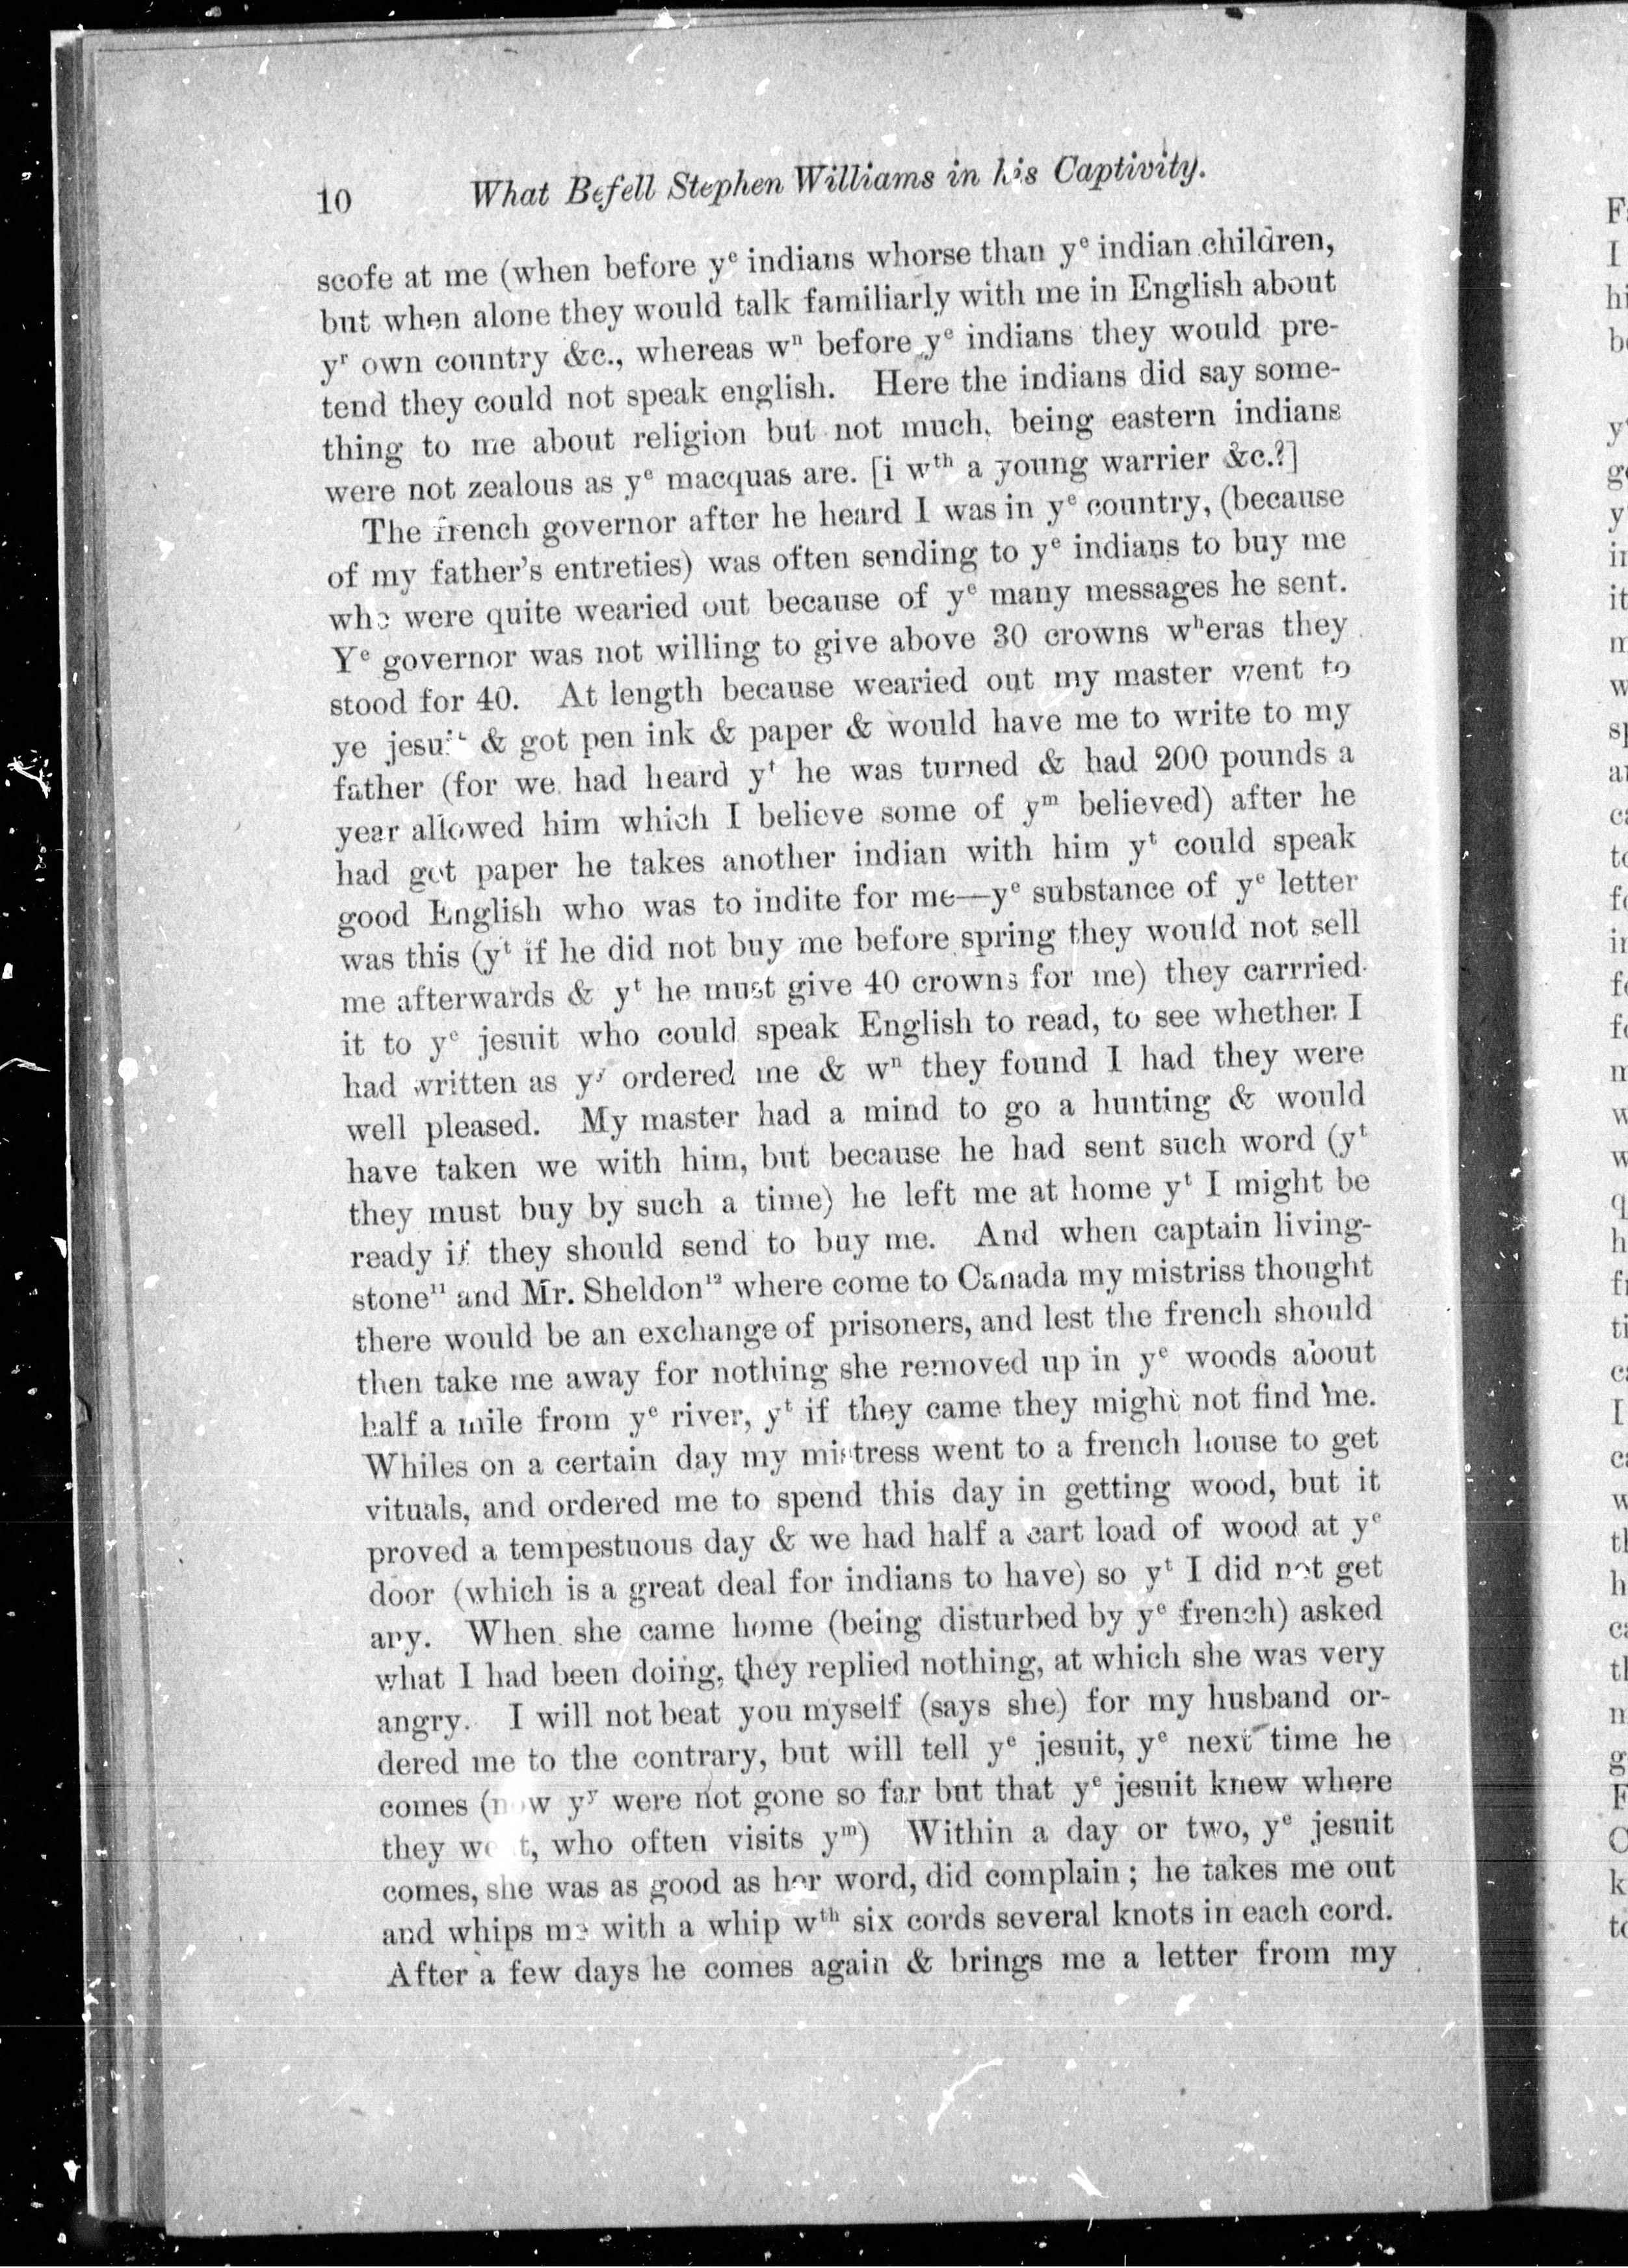 10 What Befell Stephen Williams in his Captivity.
scofe at me (when before yᵉ indians whorse than yᵉ indian children,
but when alone they would talk familiarly with me in English about
yʳ own country &c., whereas wⁿ before yᵉ indians they would pre-
tend they could not speak english. Here the indians did say some-
thing to me about religion but not much, being eastern indians
were not zealous as yᵉ macquas are. [i wᵗʰ a young warrier &c.?]
The french governor after he heard I was in yᵉ country, (because
of my father's entreties) was often sending to yᵉ indians to buy me
who were quite wearied out because of yᵉ many messages he sent.
Yᵉ governor was not willing to give above 30 crowns wʰeras they
stood for 40. At length because wearied out my master went to
ye jesuit & got pen ink & paper & would have me to write to my
father (for we had heard yᵗ he was turned & had 200 pounds a
year allowed him which I believe some of yᵐ believed) after he
had got paper he takes another indian with him yᵗ could speak
good English who was to indite for me—yᵉ substance of yᵉ letter
was this (yᵗ if he did not buy me before spring they would not sell
me afterwards & yᵗ he must give 40 crowns for me) they carrried
it to yᵉ jesuit who could speak English to read, to see whether I
had written as yʸ ordered me & wⁿ they found I had they were
well pleased. My master had a mind to go a hunting & would
have taken we with him, but because he had sent such word (yᵗ
they must buy by such a time) he left me at home yᵗ I might be
ready if they should send to buy me. And when captain living-
stone¹¹ and Mr. Sheldon¹² where come to Canada my mistriss thought
there would be an exchange of prisoners, and lest the french should
then take me away for nothing she removed up in yᵉ woods about
half a mile from yᵉ river, yᵗ if they came they might not find me.
Whiles on a certain day my mistress went to a french house to get
vituals, and ordered me to spend this day in getting wood, but it
proved a tempestuous day & we had half a cart load of wood at yᵉ
door (which is a great deal for indians to have) so yᵗ I did not get
any. When she came home (being disturbed by yᵉ french) asked
what I had been doing, they replied nothing, at which she was very
angry. I will not beat you myself (says she) for my husband or-
dered me to the contrary, but will tell yᵉ jesuit, yᵉ next time he
comes (now yʸ were not gone so far but that yᵉ jesuit knew where
they went, who often visits yᵐ) Within a day or two, yᵉ jesuit
comes, she was as good as her word, did complain; he takes me out
and whips me with a whip wᵗʰ six cords several knots in each cord.
After a few days he comes again & brings me a letter from my